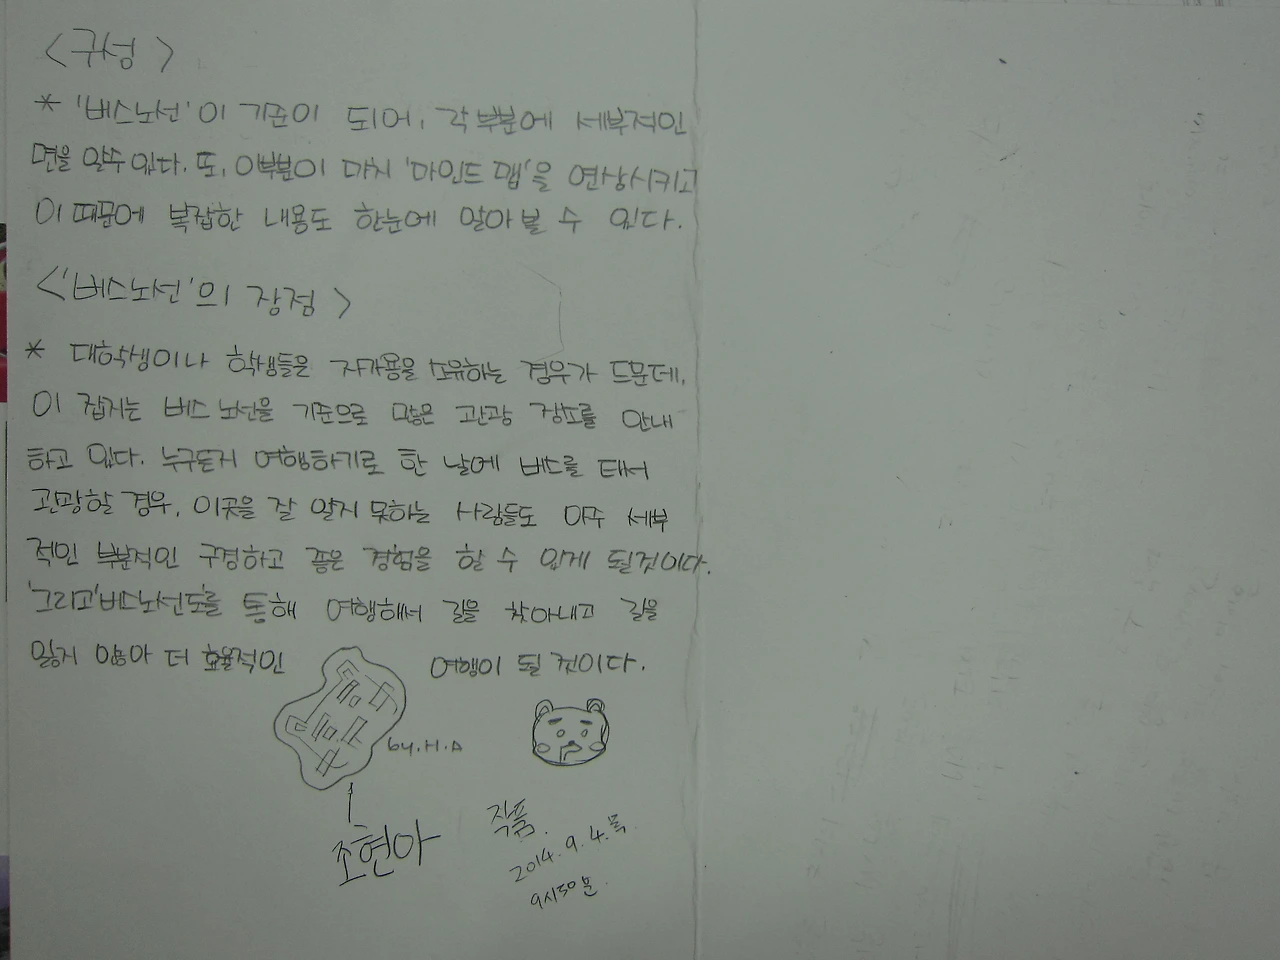 <구성>
* '버스노선'이 기준이 되어, 각 부분에 세부적인
면을 알수 있다. 또, 이부분이 마치 '마인드 맵'을 연상시키고
이 때문에 복잡한 내용도 한눈에 알아 볼 수 있다.
<'버스노선'의 장점>
* 대학생이나 학생들은 자가용을 소유하는 경우가 드문데,
이 잡지는 버스 노선을 기준으로 많은 관광 장소를 안내
하고 있다. 누구든지 여행하기로 한 날에 버스를 타서
관광할 경우, 이곳을 잘 알지 못하는 사람들도 아주 세부
적인 부분적인 구경하고 좋은 경험을 할 수 있게 될것이다.
'그리고'버스노선도'를 통해 여행해서 길을 찾아내고 길을
잃지 않아 더 효율적인 여행이 될 것이다.
by.H.A
조현아
작품.
2014.9.4.목
9시50분.